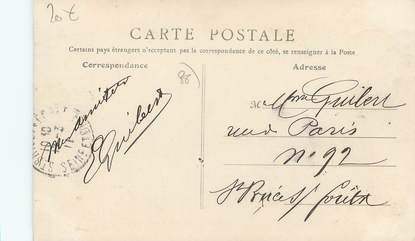 20 €
CARTE POSTALE
Certains pays étrangers n'acceptant pas la correspondance de ce côté, se renseigner à la Poste
Correspondance
Adresse
80)
amitiés
E Guibert
Mme Guibert
rue de Paris
N° 92